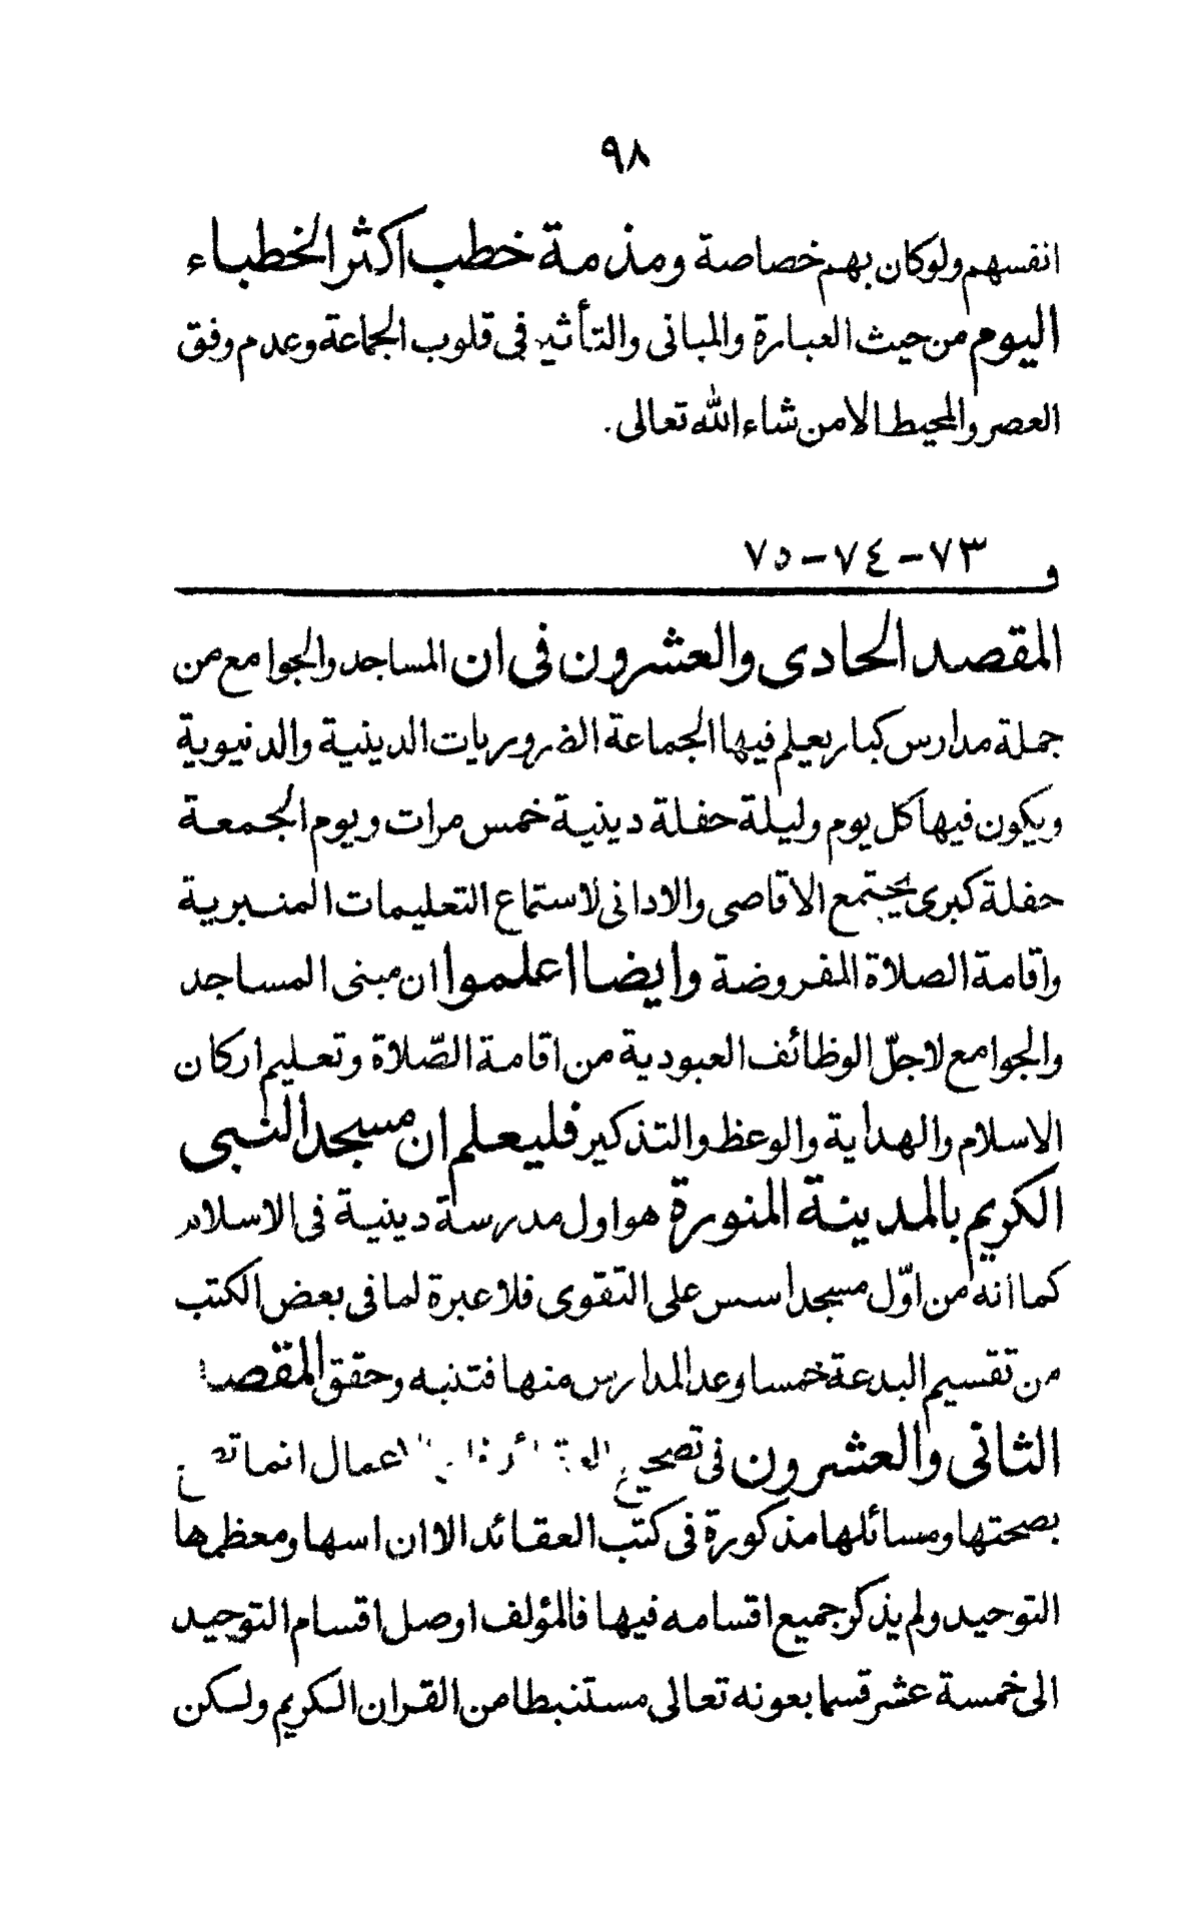 ٩٨
انفسهم ولو كان بهم خصاصة ومذمة خطب اكثر الخطباء
اليوم من حيث العبارة والمبانى والتأثير فى قلوب الجماعة وعدم وفق
العصر والمحيط الا من شاء الله تعالى.
و ٧٣-٧٤-٧٥
المقصد الحادى والعشرون فى ان المساجد والجوامع من
جملة مدارس كبار يعلم فيها الجماعة الضروريات الدينية والدنيوية
ويكون فيها كل يوم وليلة حفلة دينية خمس مرات ويوم الجمعة
حفلة كبرى يجتمع الاقاصى والادانى لاستماع التعليمات المنبرية
واقامة الصلاة المفروضة وايضا اعلموا ان مبنى المساجد
والجوامع لاجلّ الوظائف العبودية من اقامة الصّلاة وتعليم اركان
الاسلام والهداية والوعظ والتذكير فليعلم ان مسجد النبى
الكريم بالمدينة المنورة هو اول مدرسة دينية فى الاسلام
كما أنه من اوّل مسجد اسس على التقوى فلا عبرة لما فى بعض الكتب
من تقسيم البدعة خمسا وعد المدارس منها فتنبه وحقق المقصد
الثانى والعشرون فى تصحيح اعمال انما
بصحتها ومسائلها مذكورة فى كتب العقائد الا ان اسها ومعظمها
التوحيد ولم يذكر جميع اقسامه فيها فالمؤلف اوصل اقسام التوحيد
الى خمسة عشر قسما بعونه تعالى مستنبطا من القران الكريم ولكن